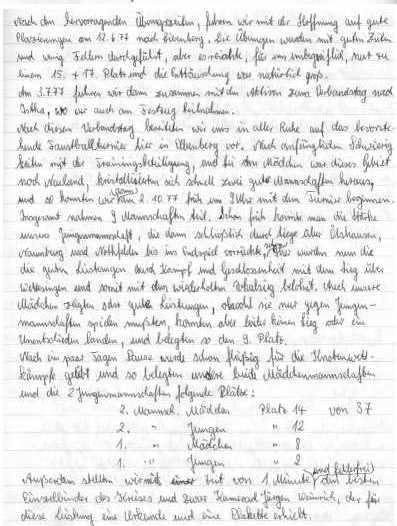 Nach den hervorragenden Übungszeiten, fuhren wir mit der Hoffnung auf gute
Plazierungen am 12.6.77 nach Eisenberg. Die Übungen wurden mit guten Zeiten
und wenig Fehlern durchgeführt, aber es reichte, für uns unbegreiflich, nur zu
einem 15. + 17. Platz und die Enttäuschung war natürlich groß.
Am 3.7.77 fuhren wir dann zusammen mit den Aktiven zum Verbandstag nach
Istha, wo wir auch am Festzug teilnahmen.
Nach diesem Verbandstag bereiteten wir uns in aller Ruhe auf das bevorste-
hende Faustballturnier hier in vor. Nach anfänglichen Schwierig
keiten mit der Trainingsbeteiligung, und bei den Mädchen war dieses Gebiet
noch Neuland, kristallisierten sich schnell zwei gute Mannschaften heraus,
und so konnten wir dann am 2.10.77 früh um 9 Uhr mit dem Turnier beginnen.
Insgesamt nahmen 9 Mannschaften teil. Schon früh konnte man die Stärke
unserer Jungenmannschaft, die dann schließlich durch Siege über Elshausen,
Naumburg und Nothfelden bis ins Endspiel vorrückte, sehen. Hier wurden nun die
die guten Leistungen durch Kampf und Geschlossenheit mit dem Sieg über
Wettesingen und somit mit dem wiederholten Pokalsieg belohnt. Auch unsere
Mädchen zeigten sehr gute Leistungen, obwohl sie nur gegen Jungen-
mannschaften spielen mußten, konnten aber leider keinen Sieg oder ein
Unentschieden landen, und belegten so den 9. Platz.
Nach ein paar Tagen Pause wurde schon fleißig für die Knotenwett-
kämpfe geübt und so belegten unsere beide Mädchenmannschaften
und die 2 Jungenmannschaften folgende Plätze:
2. Mannsch. Mädchen Platz 14 von 37
2. " Jungen " 12
1. " Mädchen " 8
1. " Jungen " 2
Außerdem stellten wir mit einer Zeit von 1 Minute und fehlerfrei den besten
Einzelbinder des Kreises und zwar Kamerad Jürgen Weinrich, der für
diese Leistung eine Urkunde und eine Plakette erhielt.